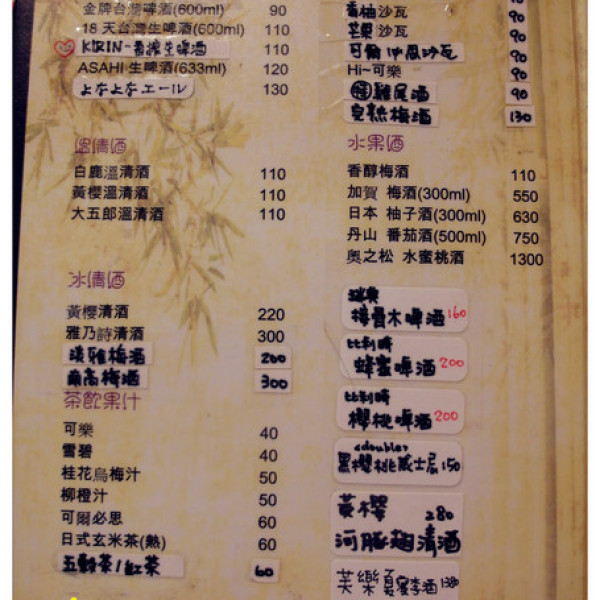 金牌台灣啤酒(600ml) 90
18 天台灣生啤酒(600ml) 110
KIRIN-香搾生啤酒 110
ASAHI 生啤酒(633ml) 120
よなよなエール 130
溫清酒
白鹿溫清酒 110
黃櫻溫清酒 110
大五郎溫清酒 110
冰清酒
黃櫻清酒 220
雅乃詩清酒 300
淡雅梅酒 200
南高梅酒 300
茶飲果汁
可樂 40
雪碧 40
桂花烏梅汁 50
柳橙汁 50
可爾必思 60
日式玄米茶(熱) 60
五穀茶/紅茶 60
香柚沙瓦 90
芒果沙瓦 90
可爾必思沙瓦 90
Hi~可樂 90
雞尾酒 90
完熟梅酒 130
水果酒
香醇梅酒 110
加賀 梅酒(300ml) 550
日本 柚子酒(300ml) 630
丹山 番茄酒(500ml) 750
奧之松 水蜜桃酒 1300
瑞奧
接骨木啤酒 160
比利時
蜂蜜啤酒 200
比利時
櫻桃啤酒 200
<double>
黑櫻桃威士忌 150
黃櫻 280
河豚翅清酒
芙樂 夏季酒 1380